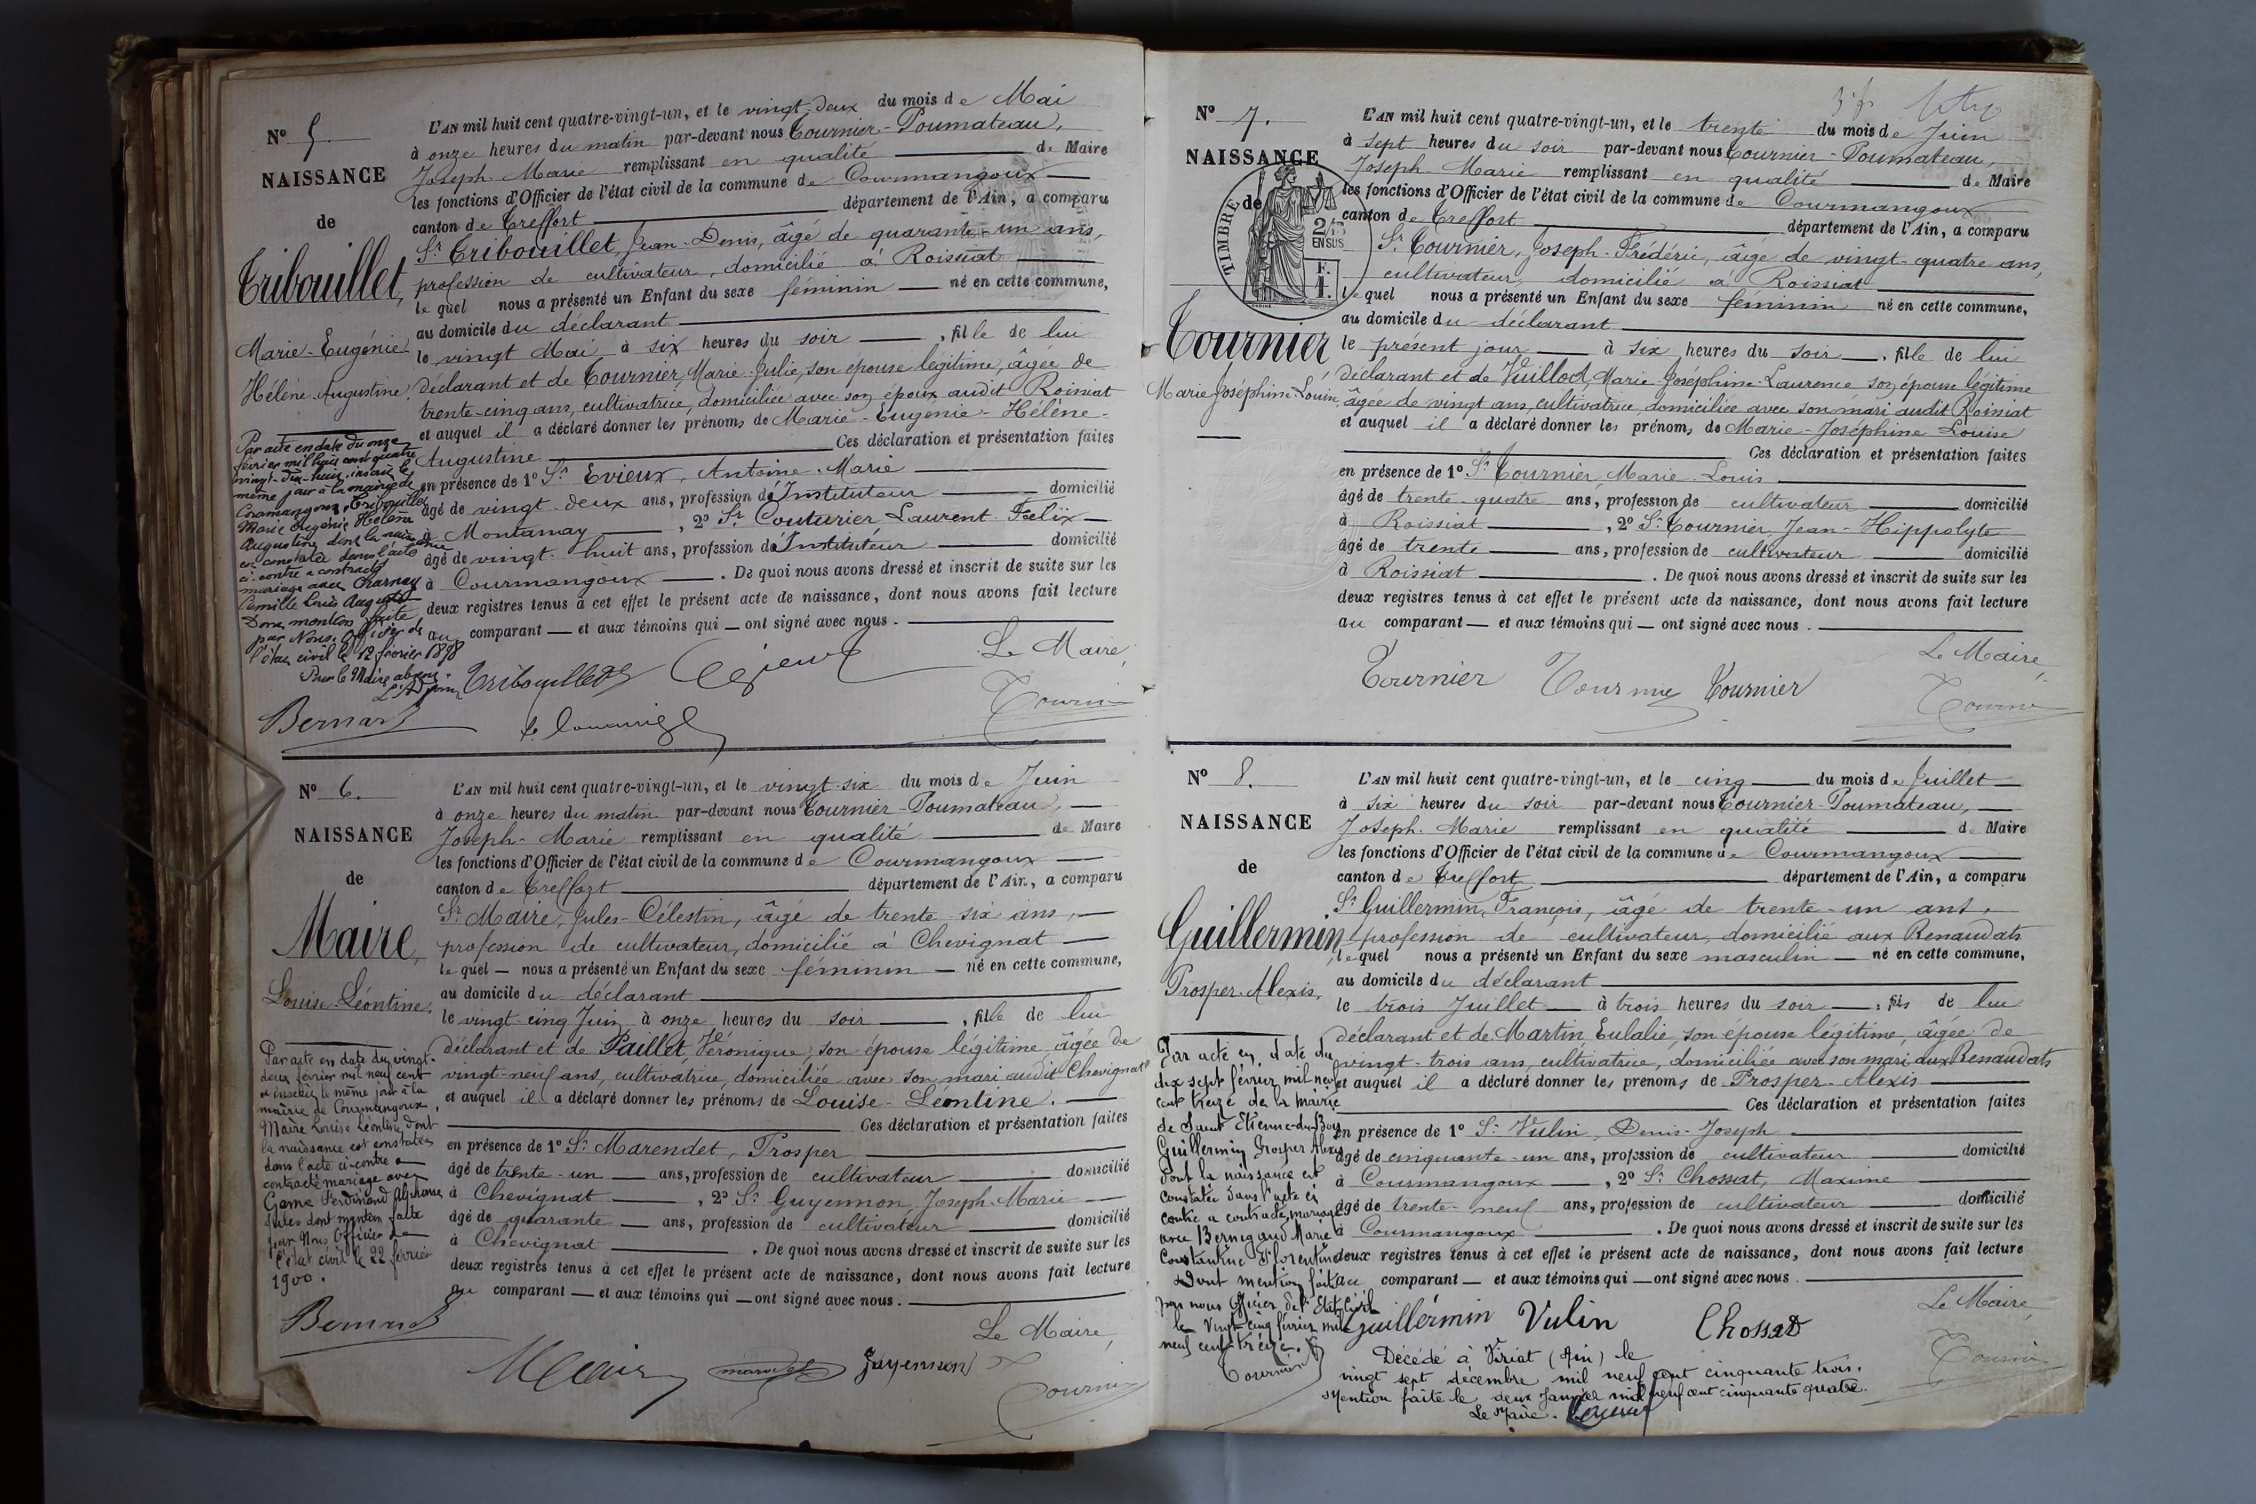 N° 5.
NAISSANCE
de
Tribouillet,
Marie-Eugénie
Hélène-Augustine.
Par acte en date du onze
février mil huit cent quatre
vingt-dix-huit, inscrit le
même jour à la mairie de
Courmangoux, Tribouillet
Marie Eugénie Hélène
Augustine dont la naissance
est constatée dans l'acte
ci-contre a contracté
mariage avec Charnay
Camille Louis Auguste
Dont mention faite
par Nous, officier de
l'état civil le 12 février 1898
Pour le Maire absent.
L'Adjoint
Bernard
L'AN mil huit cent quatre-vingt-un, et le vingt-deux du mois de Mai
à onze heures du matin par-devant nous Tournier-Poumateau,
Joseph-Marie remplissant en qualité de Maire
les fonctions d'Officier de l'état civil de la commune de Courmangoux
canton de Treffort département de l'Ain, a comparu
Sr. Tribouillet, Jean-Denis, âgé de quarante-un ans,
profession de cultivateur, domicilié à Roissiat
lequel nous a présenté un Enfant du sexe féminin né en cette commune,
au domicile du déclarant
le vingt Mai à six heures du soir, fille de lui
déclarant et de Tournier, Marie-Julie, son épouse légitime, âgée de
trente-cinq ans, cultivatrice, domiciliée avec son époux audit Roissiat
et auquel il a déclaré donner les prénoms de Marie-Eugénie-Hélène-
Augustine Ces déclaration et présentation faites
en présence de 1° Sr. Evieux, Antoine-Marie
âgé de vingt-deux ans, profession d'Instituteur domicilié
à Montanay, 2° Sr. Couturier, Laurent-Felix
âgé de vingt-huit ans, profession d'Instituteur domicilié
à Courmangoux. De quoi nous avons dressé et inscrit de suite sur les
deux registres tenus à cet effet le présent acte de naissance, dont nous avons fait lecture
au comparant et aux témoins qui ont signé avec nous.
Le Maire,
Tribouillet
Tournier
N° 6.
NAISSANCE
de
Maire,
Louise-Léontine,
Par acte en date du vingt-
deux février mil neuf cent
et inscrit le même jour à la
mairie de Courmangoux,
Maire Louise Léontine dont
la naissance est constatée
dans l'acte ci-contre a
contracté mariage avec
Game Ferdinand Alphonse
Jules dont mention faite
par Nous Officier de
l'état civil le 22 février
1900.
Bernard
L'AN mil huit cent quatre-vingt-un, et le vingt-six du mois de Juin
à onze heures du matin par-devant nous Tournier-Poumateau,
Joseph-Marie remplissant en qualité de Maire
les fonctions d'Officier de l'état civil de la commune de Courmangoux
canton de Treffort département de l'Ain, a comparu
Sr. Maire, Jules-Célestin, âgé de trente-six ans,
profession de cultivateur, domicilié à Chevignat
lequel nous a présenté un Enfant du sexe féminin né en cette commune,
au domicile du déclarant
le vingt-cinq Juin à onze heures du soir, fille de lui
déclarant et de Paillet, Véronique, son épouse légitime âgée de
vingt-neuf ans, cultivatrice, domiciliée avec son mari audit Chevignat
et auquel il a déclaré donner les prénoms de Louise-Léontine.
Ces déclaration et présentation faites
en présence de 1° Sr. Marendet, Prosper
âgé de trente-un ans, profession de cultivateur domicilié
à Chevignat, 2° Sr. Guyennon, Joseph-Marie
âgé de quarante ans, profession de cultivateur domicilié
à Chevignat. De quoi nous avons dressé et inscrit de suite sur les
deux registres tenus à cet effet le présent acte de naissance, dont nous avons fait lecture
au comparant et aux témoins qui ont signé avec nous.
Le Maire,
Maire marendet Guyennon
Tournier
N° 7.
NAISSANCE
de
TIMBRE
2/5
EN SUS
F.
1.
Tournier
Marie Joséphine-Louise
L'AN mil huit cent quatre-vingt-un, et le trente du mois de Juin
à sept heures du soir par-devant nous Tournier-Poumateau,
Joseph-Marie remplissant en qualité de Maire
les fonctions d'Officier de l'état civil de la commune de Courmangoux
canton de Treffort département de l'Ain, a comparu
Sr. Tournier, Joseph-Frédéric, âgé de vingt-quatre ans,
cultivateur, domicilié à Roissiat
lequel nous a présenté un Enfant du sexe féminin né en cette commune,
au domicile du déclarant
le présent jour à six heures du soir, fille de lui
déclarant et de Vuillod, Marie-Joséphine-Laurence son épouse légitime
âgée de vingt ans, cultivatrice, domiciliée avec son mari audit Roissiat
et auquel il a déclaré donner les prénoms de Marie-Joséphine Louise
Ces déclaration et présentation faites
en présence de 1° Sr. Tournier, Marie-Louis
âgé de trente-quatre ans, profession de cultivateur domicilié
à Roissiat, 2° Sr. Tournier, Jean-Hippolyte
âgé de trente ans, profession de cultivateur domicilié
à Roissiat. De quoi nous avons dressé et inscrit de suite sur les
deux registres tenus à cet effet le présent acte de naissance, dont nous avons fait lecture
au comparant et aux témoins qui ont signé avec nous.
Le Maire,
Tournier Tournier Tournier
Tournier
N° 8.
NAISSANCE
de
Guillermin,
Prosper-Alexis,
Par acte en date du
dix sept février mil neuf
cent treize de la mairie
de Saint Etienne-du-Bois
Guillermin Prosper Alexis
dont la naissance est
constatée dans l'acte ci
contre a contracté mariage
avec Bernigaud Marie
Constantine Florentine
Dont mention faite
par nous officier de l'Etat Civil
le vingt cinq février mil
neuf cent treize.
Tournier
L'AN mil huit cent quatre-vingt-un, et le cinq du mois de Juillet
à six heures du soir par-devant nous Tournier-Poumateau,
Joseph-Marie remplissant en qualité de Maire
les fonctions d'Officier de l'état civil de la commune de Courmangoux
canton de Treffort département de l'Ain, a comparu
Sr. Guillermin, François, âgé de trente-un ans,
profession de cultivateur, domicilié aux Renaudats
lequel nous a présenté un Enfant du sexe masculin né en cette commune,
au domicile du déclarant
le trois Juillet à trois heures du soir, fils de lui
déclarant et de Martin, Eulalie, son épouse légitime, âgée de
vingt-trois ans, cultivatrice, domiciliée avec son mari aux Renaudats
et auquel il a déclaré donner les prénoms de Prosper-Alexis
Ces déclaration et présentation faites
en présence de 1° Sr. Vulin, Denis-Joseph
âgé de cinquante-un ans, profession de cultivateur domicilié
à Courmangoux, 2° Sr. Chossat, Maxime
âgé de trente-neuf ans, profession de cultivateur domicilié
à Courmangoux. De quoi nous avons dressé et inscrit de suite sur les
deux registres tenus à cet effet le présent acte de naissance, dont nous avons fait lecture
au comparant et aux témoins qui ont signé avec nous.
Le Maire,
Guillermin Vulin Chossat
Tournier
Décédé à Viriat (Ain) le
vingt sept décembre mil neuf cent cinquante trois.
Mention faite le deux Janvier mil neuf cent cinquante quatre.
Le Maire.